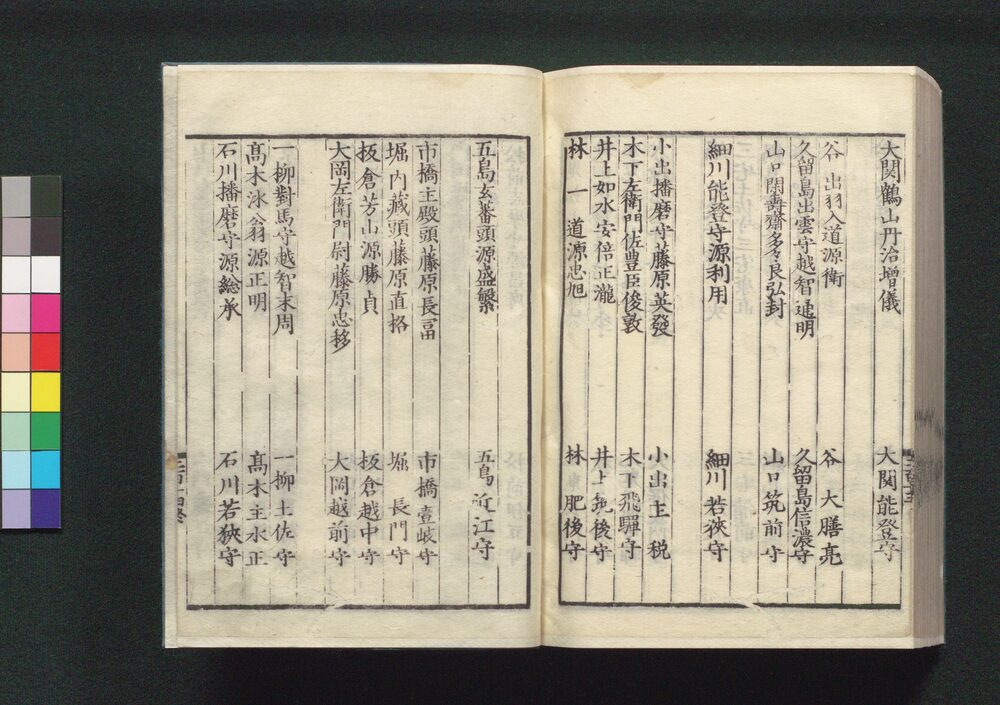 大関鶴山丹治増儀　大関能登守
谷　出羽入道源衛　谷　大膳亮
久留島出雲守越智通明　久留島信濃守
山口閑壽齋多々良弘封　山口筑前守
細川能登守源利用　細川若狹守
小出播磨守藤原英發　小出主税
木下左衛門佐豊臣俊敦　木下飛驒守
井上如水安倍正瀧　井上筑後守
林　一　道源忠旭　林　肥後守
五島玄番頭源盛繁　五島近江守
市橋主殿頭藤原長富　市橋壹岐守
堀内藏頭藤原直格　堀　長門守
板倉芳山源勝貞　板倉越中守
大岡左衛門尉藤原忠移　大岡越前守
一柳對馬守越智末周　一柳土佐守
髙木泳翁源正明　髙木主水正
石川播磨守源総承　石川若狹守